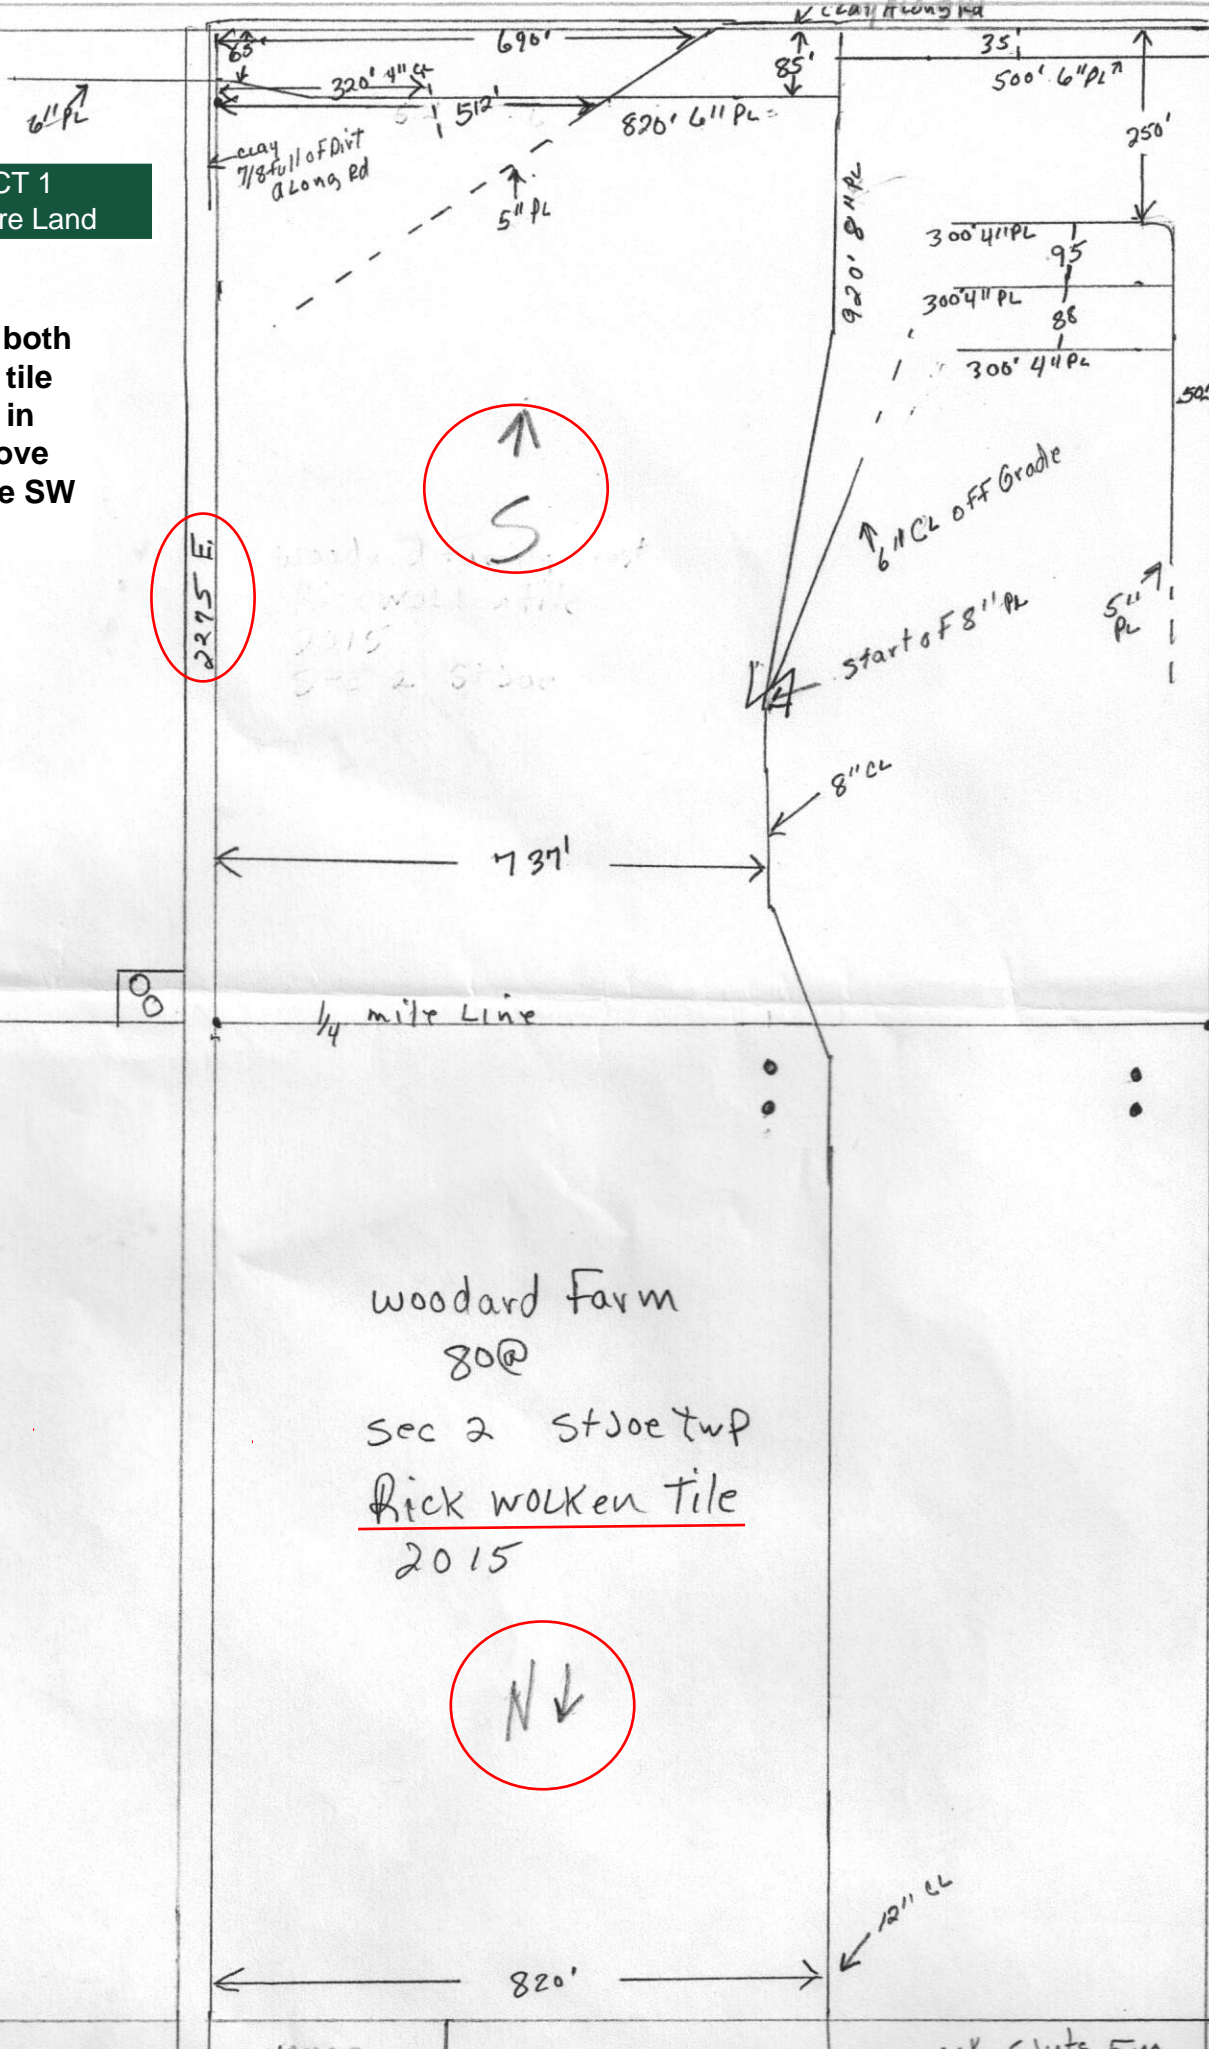 CLAY ALong Rd
690'
65'
85'
35'
500' 6" PL
320' 4" CL
512'
820' 6" PL
6" PL
250'
CLAY
7/8 full of Dirt
ALong Rd
CT 1
re Land
5" PL
920' 8" PL
300' 4" PL
95
300' 4" PL
88
300' 4" PL
505
both
tile
in
ove
e SW
S
2275 E.
6" CL off Grade
5"
PL
Start of 8" PL
8" CL
737'
1/4 mile Line
woodard Farm
80@
Sec 2 St Joe Twp
Rick WOLKen Tile
2015
N
12" CL
820'